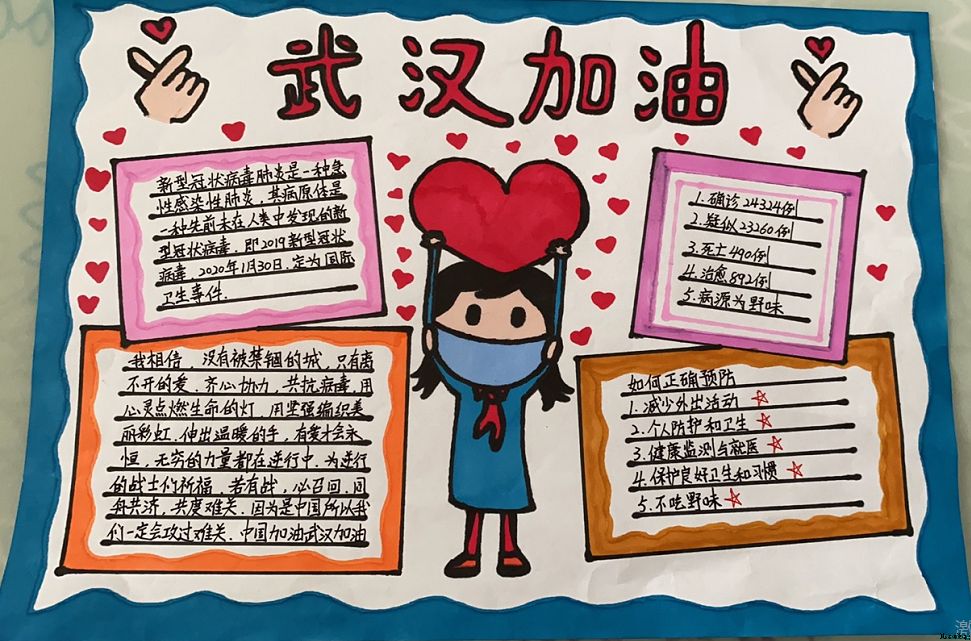 武汉加油
新型冠状病毒肺炎是一种急
性感染性肺炎,其病原体是
一种先前未在人类中发现的新
型冠状病毒,即2019新型冠状
病毒.2020年1月30日.定为国际
卫生事件.
1.确诊24324例
2.疑似23260例
3.死亡490例
4.治愈892例
5.病源为野味
我相信,没有被禁锢的城,只有离
不开的爱,齐心协力,共抗病毒,用
心灵点燃生命的灯,用坚强编织美
丽彩虹.伸出温暖的手,有爱才会永
恒,无穷的力量都在逆行中.为逆行
的战士们祈福,若有战,必召回,同
舟共济,共度难关.因为是中国所以我
们一定会攻过难关.中国加油武汉加油
如何正确预防
1.减少外出活动
2.个人防护和卫生
3.健康监测与就医
4.保护良好卫生和习惯
5.不吃野味